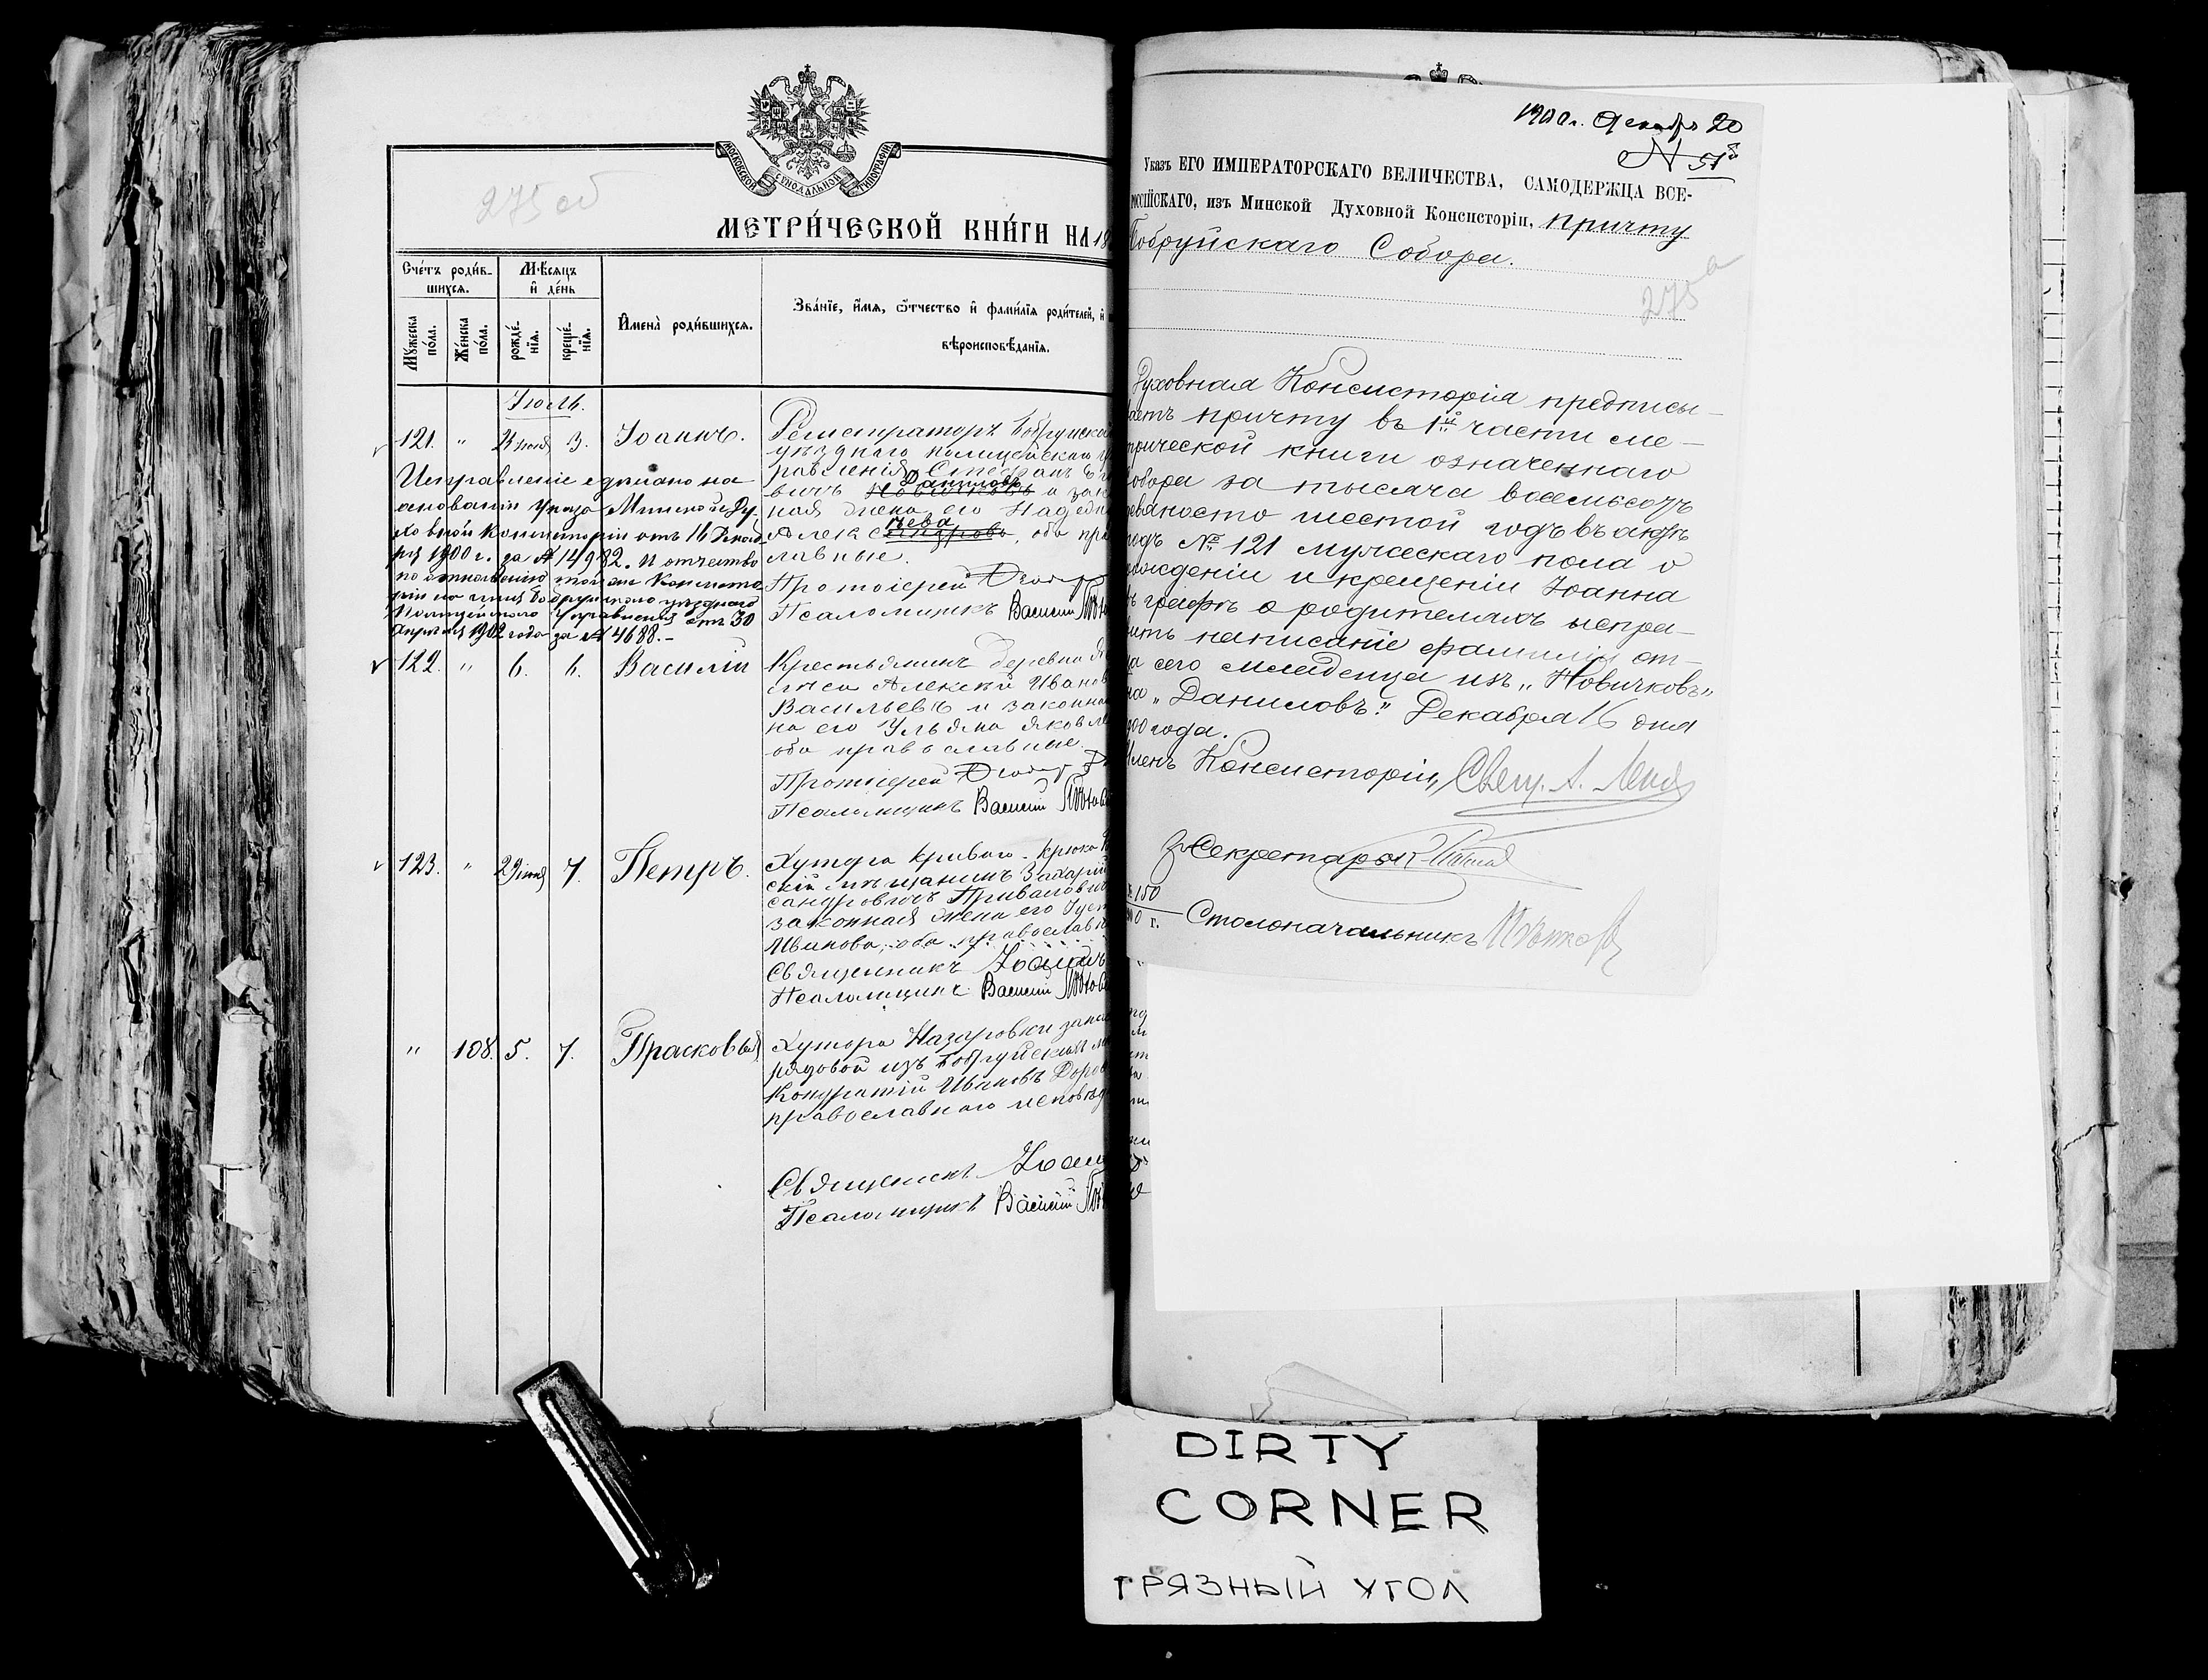 275 об
МОСКОВСКОЙ СѴНОДАЛЬНОЙ ТИПОГРАФІИ
МЕТРИ́ЧЕСКОЙ КНИ́ГИ НА 18
Сче́тъ роди́в-
шихся.
Мѣсяцъ
и де́нь
Му́жеска
по́ла.
Же́нска
по́ла.
рожде́-
нїя.
креще́-
нїя.
Имена̀ роди́вшихся.
Зва́нїе, и́мя, ѻ́тчество и фами́лїя роди́телей, и
вѣроисповѣ́данїя.
Іюль.
121. " 3. Іоаннъ.
Регистраторъ Бобруйска
уѣзднаго полицейскаго
равленія Стефанъ
вичъ Новичковъ Даниловъ и зак
ная жена его Надеж
Алексѣева, оба пра
лавные.
Протоіерей
Псаломщикъ Василій
Исправленіе сдѣлано на
основаніи Указа Минской Ду-
ховной Консисторіи отъ 16 Декаб-
ря 1900 г. за № 14982. И отчество
по отношенію той же Консисто-
ріи на имя Бобруйскаго уѣзднаго
Полицейскаго Управленія отъ 30
Апрѣля 1902 года за № 4688.-
122. " 6. 6. Василій
Крестьянинъ деревни
Алексѣй Иванов
Васильевъ и законна
на его Ульяна Яковле
оба православные.
Протоіерей
Псаломщикъ Василій
123. " 29 іюня 7. Петръ.
Хутора Криваго-Крюка
скій мѣщанинъ Захарій
сандровичъ Привалов
законная жена его
Иванова, оба православн
Священникъ Іоаннъ
Псаломщикъ Василій
" 108. 5. 7. Прасковья
Хутора Назаровки запа
рядовой изъ Бобруйскихъ
Кондратій Ивановъ Доро
православнаго исповѣд
Священникъ Іоанн
Псаломщикъ Василій
1900 г. Декабр 20
N 518
Указъ ЕГО ИМПЕРАТОРСКАГО ВЕЛИЧЕСТВА, САМОДЕРЖЦА ВСЕ-
РОССІЙСКАГО, изъ Минской Духовной Консисторіи, причту
Бобруйскаго Собора.
275 а
Духовная Консисторія предписы-
аетъ причту въ 1й части ме-
трической книги означеннаго
Собора за тысяча восемьсотъ
девяносто шестой годъ въ актѣ
подъ № 121 мужескаго пола о
рожденіи и крещеніи Іоанна
въ графѣ о родителяхъ испра-
вить написаніе фамиліи от-
ца сего младенца изъ "Новичковъ"
на "Даниловъ". Декабря 16 дня
1900 года.
Членъ Консисторіи, Свящ. А.
Секретарь
150
г.
Столоначальникъ
DIRTY
CORNER
ГРЯЗНЫЙ УГОЛ